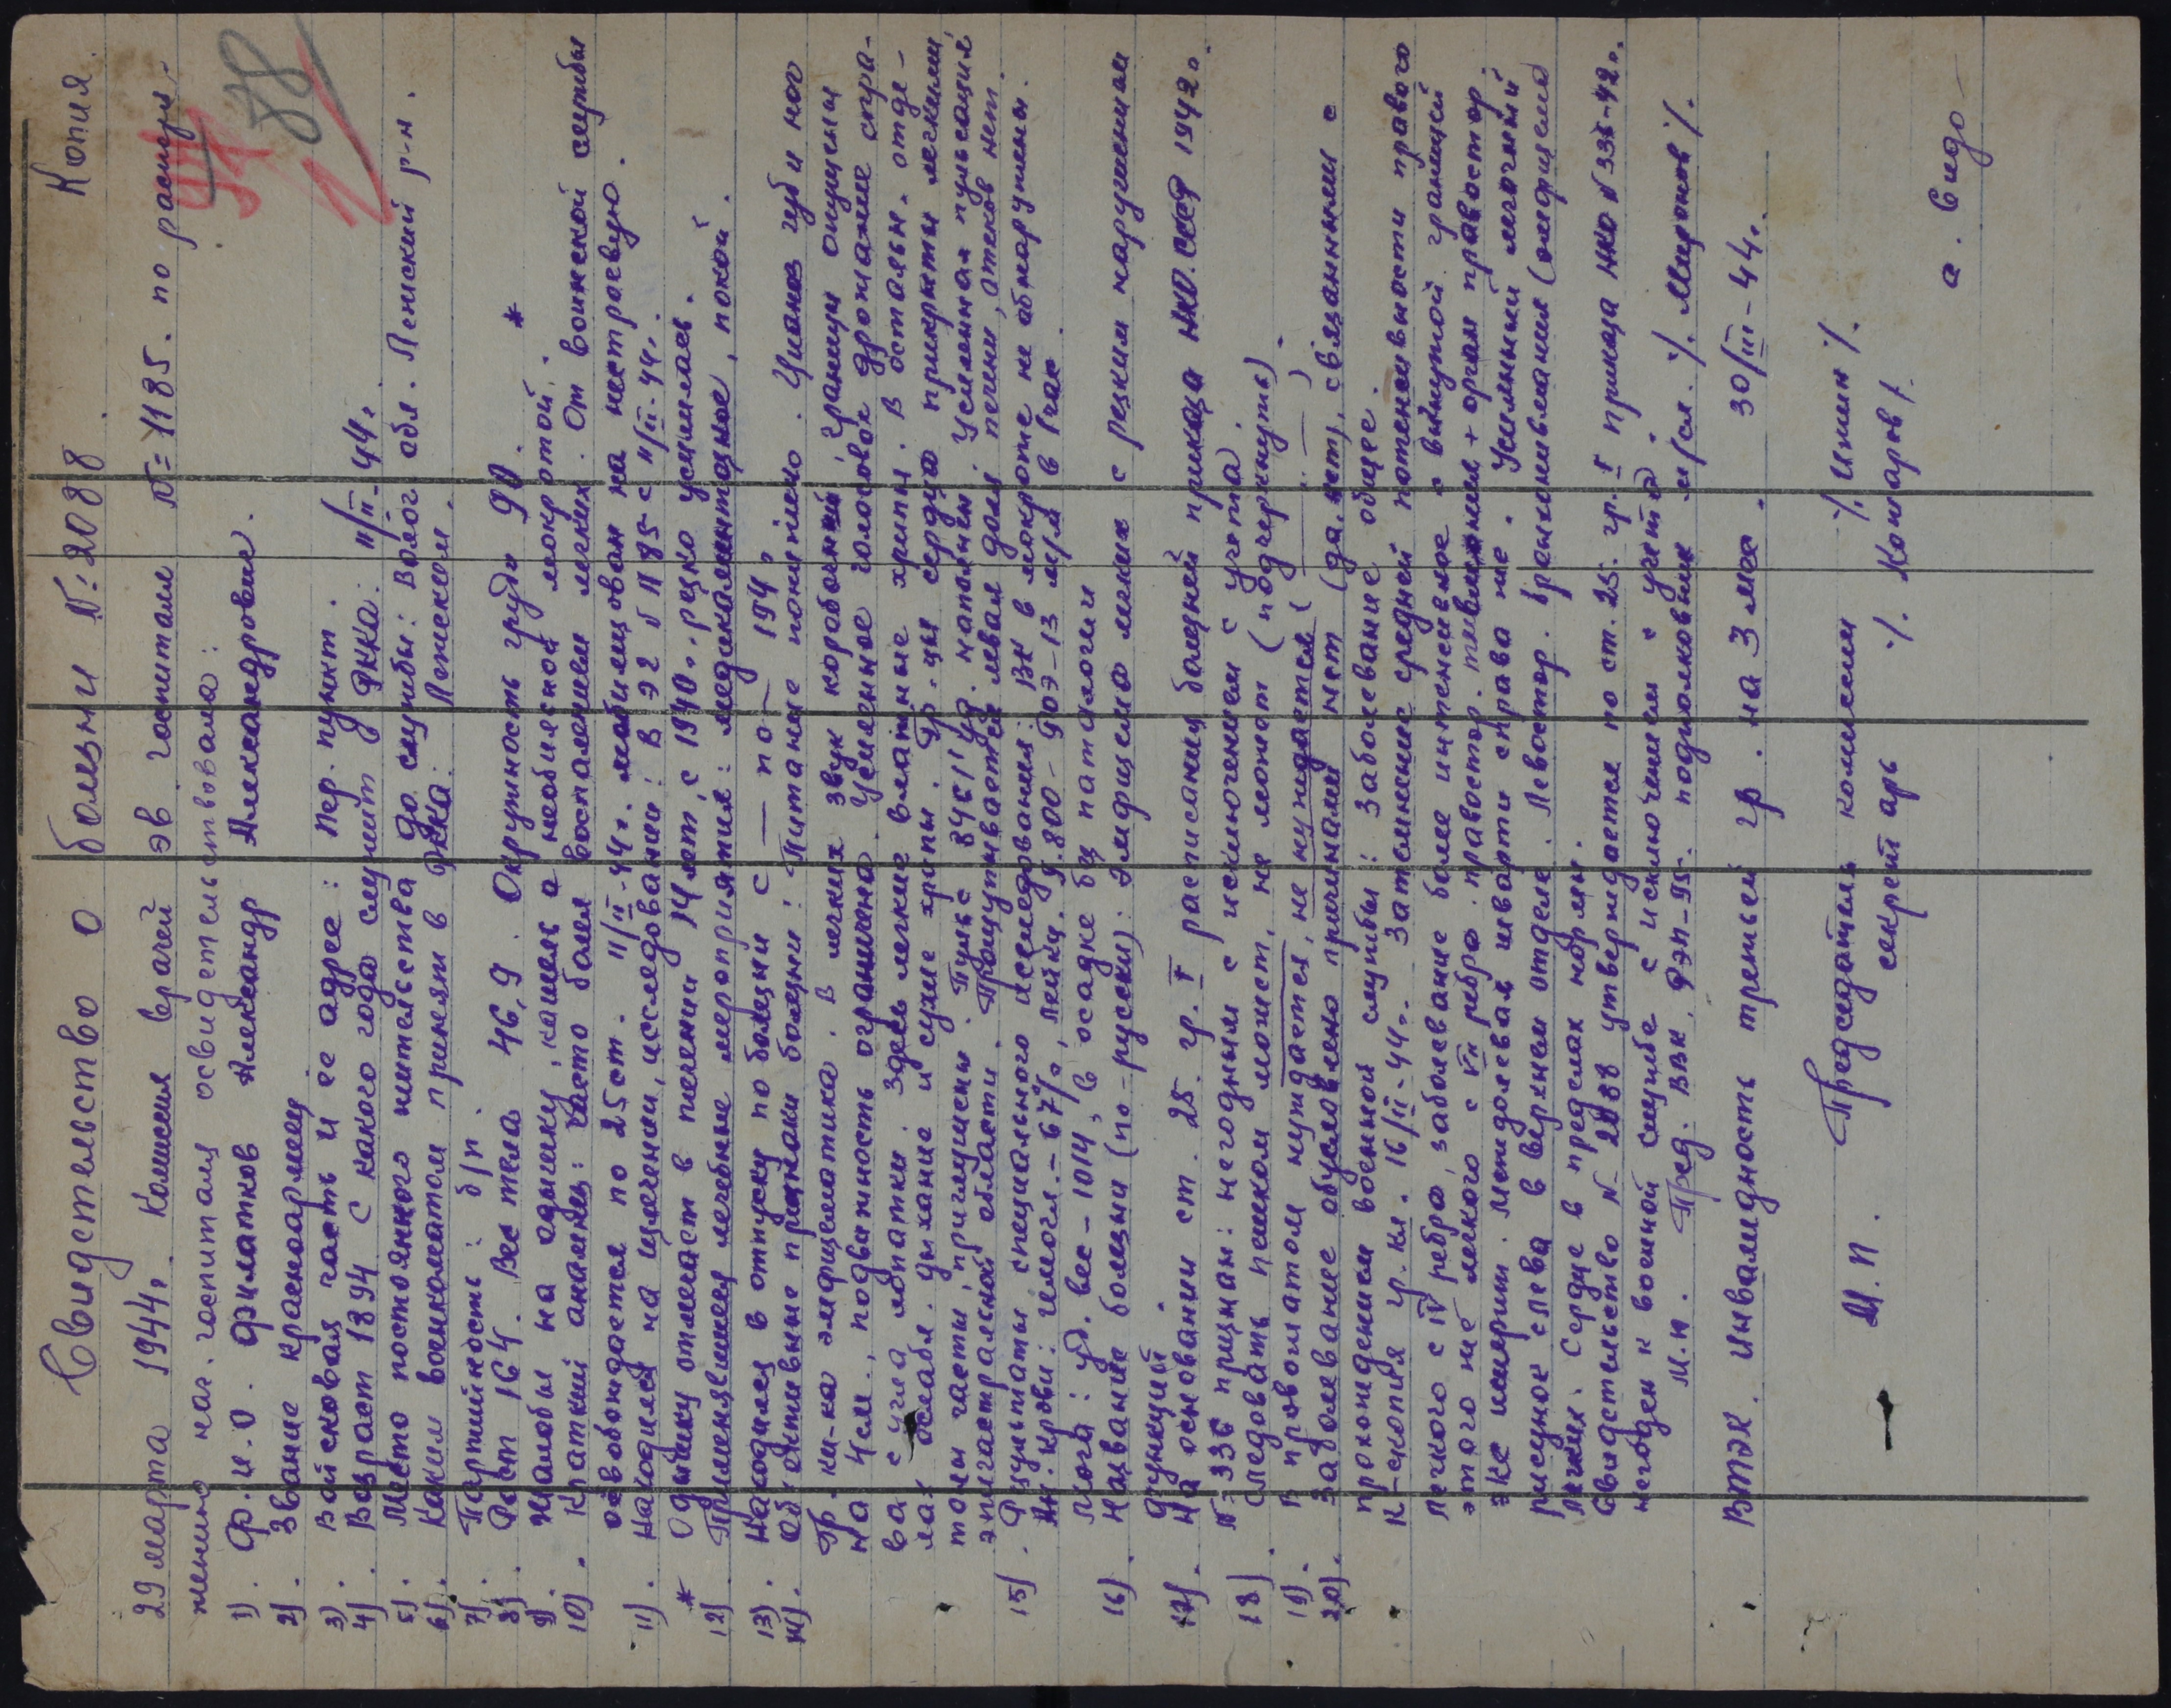 Копия.
Свидетельство о болезни № 2088
29 марта 1944г. Комиссия врачей эв. госпиталя №=1185. по распоря-
жению нач. госпиталя освидетельствовала:
1). Ф.И.О. Филатков Александр Александрович.
2). Звание красноармеец
3) Войсковая часть и ее адрес: Пер. пункт.
4). Возраст 1894 С какого года служит РККА: 11/II-44г.
5). Место постоянного жительства до службы: Волог. обл. Лежский р-н.
6). Каким военкоматом принят в РККА: Лежском.
7). Партийность: б/п.
8). Рост 164. Вес тела 46,9. Окружность груди 90.
9). Жалобы на одышку, кашель с небольшой мокротой. *
10). Краткий анамнез: часто болел воспалением легких. От воинской службы
освобождается по 25 ст. 11/II-44г. мобилизован на нестроевую.
11). Находился на излечении, исследовании: в ЭГ № 1185 с 11/III-44г.
* Одышку отмечает в течении 14 лет, с 1940г. резко усилилась.
12). Применявшиеся лечебные мероприятия: медикаментозное, покой.
13). Находился в отпуску по болезни с — по — 194 г.
14). Объективные признаки болезни: Питание понижено. Цианоз губ и ног
Гр. кл-ка эмфизематика. В легких звук коробочный, границы опущены
на 4см., подвижность ограничена. Усиленное голосовое дрожание спра-
ва с угла лопатки. Здесь легкие влажные хрипы. В остальн. отде-
лах ослабл. дыхание и сухие хрипы. Гр-цы сердца прикрыты легкими,
тоны часты, приглушены. Пульс 84 в 1' уд. натяжен. Усиленная пульсация
эпигастральной области. Прощупывается левая доля печени, отеков нет.
15). Результаты специального исследования: ВК в мокроте не обнаружены.
Ан. крови: гемогл.-67%, лейкц. 9.800- РОЭ-13 м/м в 1 час.
Моча: уд. вес-1014, в осадке без патологии
16). Название болезни (по-русски): Эмфизема легких с резким нарушением
функций.
17). На основании ст. 25. гр. I расписания болезней приказа НКО.СССР 1942г.
№ 336 признан: негодным с исключением с учета.
18). Следовать пешком может, не может (подчеркнуть).
19). В провожатом нуждается, не нуждается ( — " — )
20). Заболевание обусловлено причинами нет (да, нет), связанными с
прохождением военной службы: Заболевание общее.
R-скопия гр. кл. 16/III-44г. Затемнение средней интенсивности правого
легкого с IV ребра, заболевание более интенсивное с вогнутой границей
этого же легкого с VII ребра.
рисунок слева в верхнем отделе.
легких. Сердце в пределах нормы.
Свидетельство № 2088 утверждается по ст. 25. гр. I приказа НКО № 336-42г.
негоден к военной службе с исключением с учета.
М.П. Пред. ВВК, РЭП-95. подполковник м/сл. /. Миронов /.
ВТЭК. Инвалидность третьей гр. на 3 мес. 30/III-44г.
М.П. Председатель комиссии /. /.
секретарь /. Комаров /.